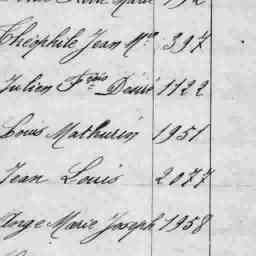 Marie 192
Théophile Jean Mie 397
Julien Fçois Désiré 1122
Louis Mathurin 1951
Jean Louis 2077
Ange Marie Joseph 1958